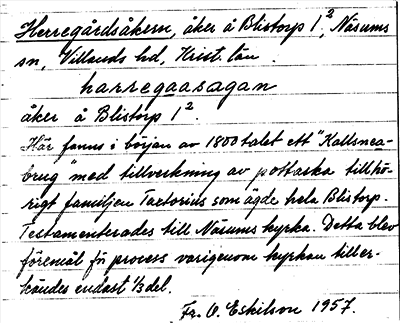 Herregårdsåkern, åker å Blistorp 1², Näsums
sn, Villands hd, Krist. län.
harregaasagan
åker å Blistorp 1².
Här fanns i början av 1800 talet ett "Kallsnea-
brug" med tillverkning av pottaska tillhö-
rigt familjen Taetorius som ägde hela Blistorp.
Testamenterades till Näsums kyrka. Detta blev
föremål för process varigenom kyrkan tiller-
kändes endast ⅓ del.
Fr. O. Eskilson 1957.